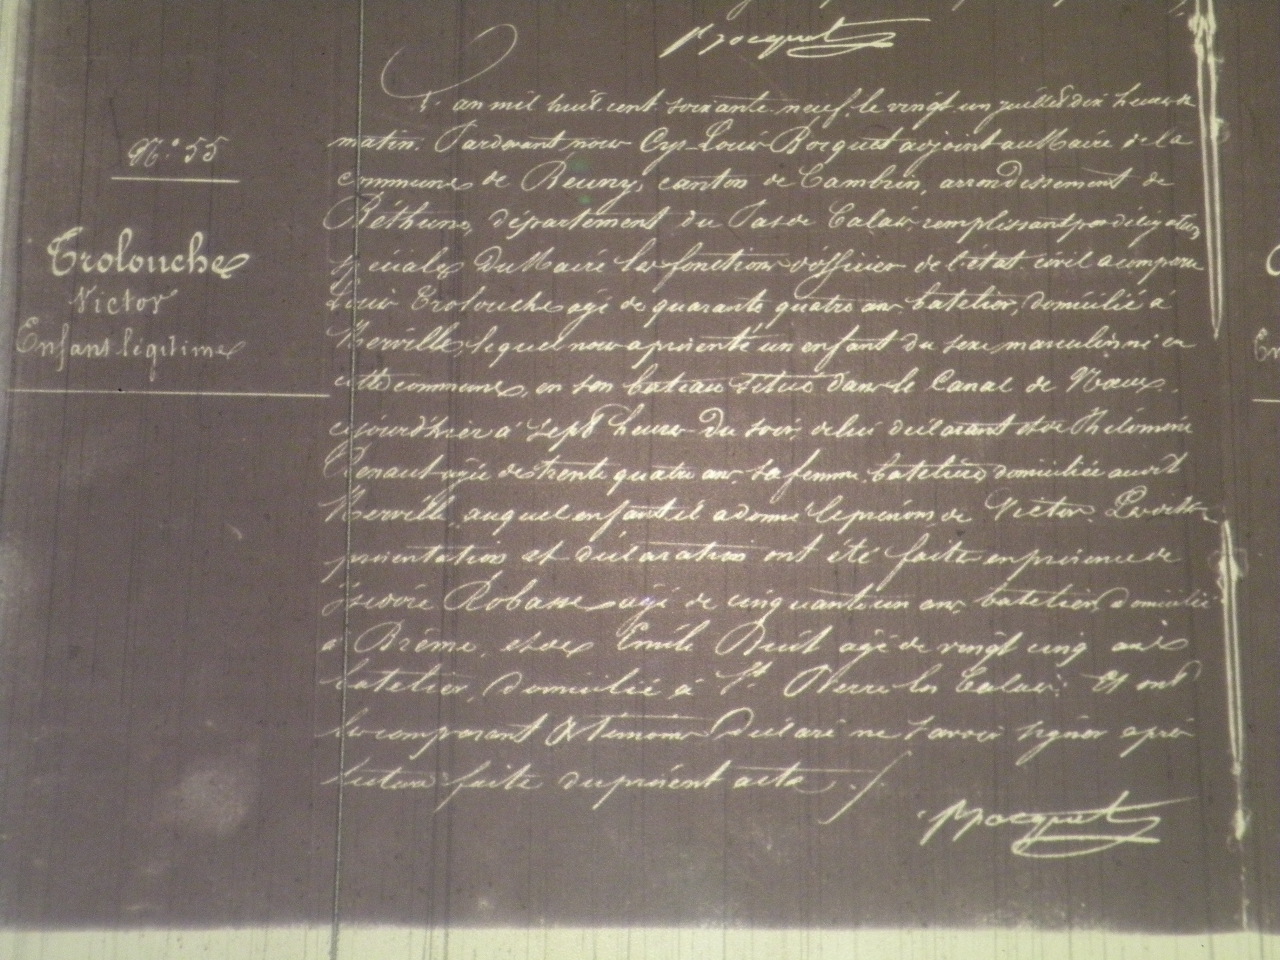 Bocquet
L'an mil huit cent soixante neuf, le vingt un juillet dix heures du
matin. Pardevant nous Louis Bocquet adjoint au Maire de la
commune de Beuvry, canton de Cambrin, arrondissement de
Béthune, département du Pas de Calais remplissant par délégation
spéciale du Maire les fonctions d'officier de l'état civil a comparu
Louis Trolouche agé de quarante quatre ans, batelier, domicilié à
Merville, lequel nous a présenté un enfant du sexe masculin né en
cette commune, en son bateau situé dans le Canal de Nœux,
à sept heures du soir, de lui déclarant et de Philomène
Renaut agée de trente quatre ans, sa femme, batelière domiciliée audit
Merville, auquel enfant il a donné le prénom de Victor. Lesdites
présentation et déclaration ont été faites en présence de
Robasse agé de cinquante un ans, batelier, domicilié
à et de Emile agé de vingt cinq ans
batelier, domicilié à St Pierre les Calais. Et ont
les comparant & témoins déclaré ne savoir signer après
lecture faite du présent acte ./.
Bocquet
N.° 55
Trolouche
Victor
Enfant légitime